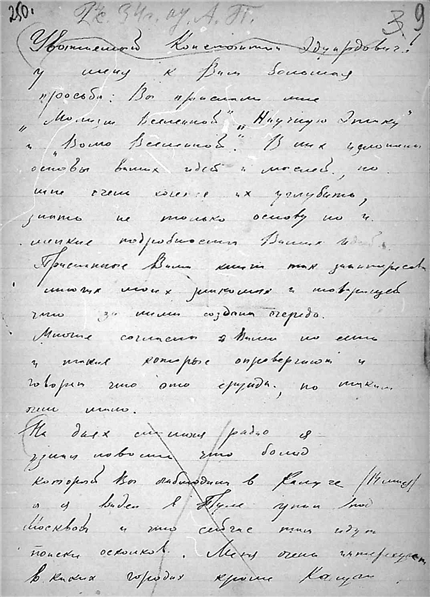 250.
24. 34г. од. А. П.
3. 9
Уважаемый Константин Эдуардович!
у меня к Вам большая
просьба: Вы прислали мне
„Монизм Вселенной" „Научную Этику"
и „Волю Вселенной". В них изложены
основы ваших идей и мыслей, но
мне очень хочется их углубить,
знать не только основу но и
мелкие подробности Ваших
Присланные Вами книги так заинтересов
многих моих знакомых и товарищей
что за ними создана очередь.
Многие согласны с Вами но есть
и такие которые опровергают и
говорят что это ерунда, но таких
очень мало.
На днях слушая радио я
узнал новость что болид
который Вы наблюдали в Калуге /14 мая/
а я видел в Туле упал под
Москвой и что сейчас там идут
поиски осколков. Меня очень интересует
в каких городах кроме Калуги